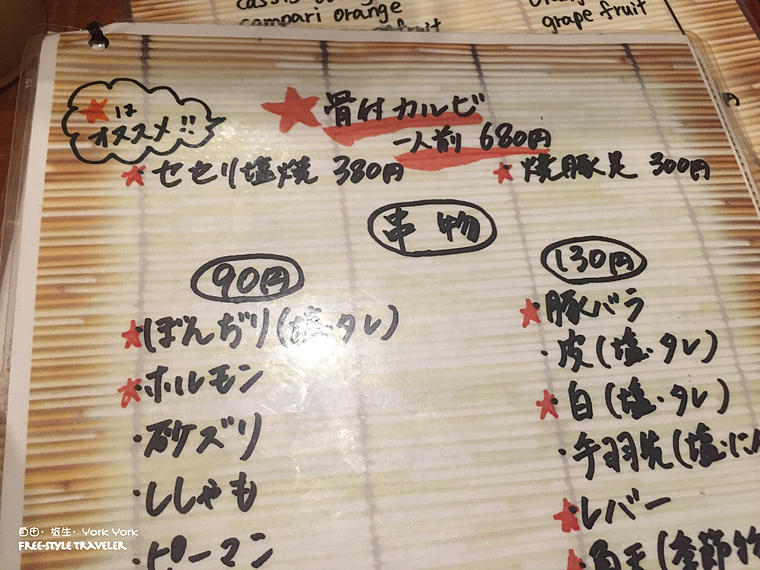 campari orange
grape fruit
★は
オススメ!!
★骨付カルビ
一人前 680円
★セセリ塩焼 380円
★焼豚足 300円
串物
90円
★・ぼんぢり(塩・タレ)
★・ホルモン
・砂ズリ
・ししゃも
・ピーマン
130円
★・豚バラ
・皮(塩・タレ)
★・白(塩・タレ)
・手羽先(塩・にん
★・レバー
★・角天(季節物
自由・旅生・York York
FREE-STYLE TRAVELER